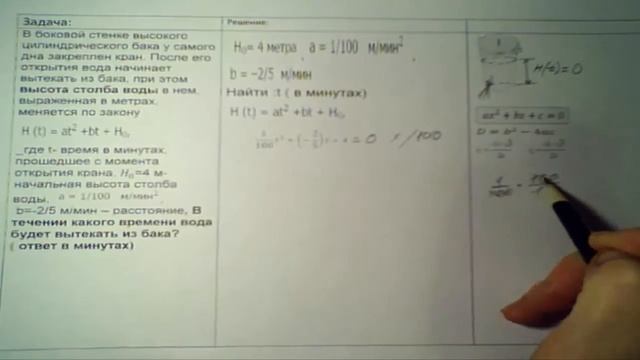 Задача:
В боковой стенке высокого
цилиндрического бака у самого
дна закреплен кран. После его
открытия вода начинает
вытекать из бака, при этом
высота столба воды в нем,
выраженная в метрах,
меняется по закону
H (t) = at² +bt + H₀
_где t- время в минутах,
прошедшее с момента
открытия крана, H₀=4 м-
начальная высота столба
воды, a = 1/100 м/мин²
b=-2/5 м/мин – расстояние, В
течении какого времени вода
будет вытекать из бака?
( ответ в минутах)
Решение:
H₀= 4 метра , a = 1/100 м/мин²
b = –2/5 м/мин
Найти :t ( в минутах)
H (t) = at² +bt + H₀
= 0 /100
H(t) = 0
ax² + bx + c = 0
D = b² – 4ac